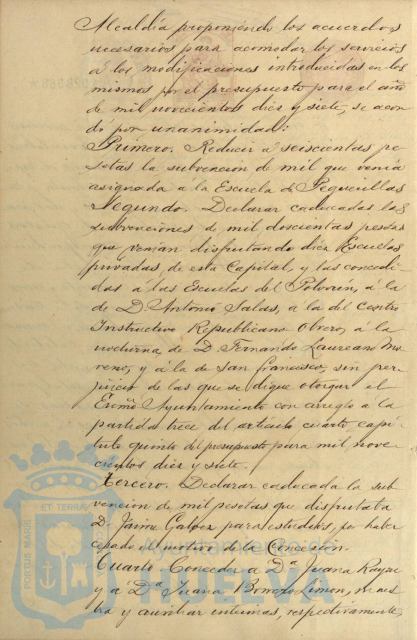 Alcaldía proponiendo los acuerdos
necesarios para acomodar los servicios
á los modificaciones introducidas en los
mismos por el presupuesto para el año
de mil novecientos diez y siete, se acor
dó por unanimidad:
Primero. Reducir á seiscientas pe
setas la subvencion de mil que venía
asignada á la Escuela de Pequeñillas
Segundo. Declarar caducadas las
subvenciones de mil doscientas pesetas
que venían disfrutando diez Escuelas
privadas, de esta Capital, y las concedi
das á las Escuelas del Polvorín, á la
de D. Antonio Salas, á la del Centro
Instructivo Republicano Obrero, á la
nocturna, de D. Fernando Laureano Mo
reno, y á la de San Francisco, sin per
juicio de las que se digne otorgar el
Excmo Ayuntamiento con arreglo á la
partida trece del artículo cuarto capí
tulo quinto del presupuesto para mil nove
cientos diez y siete.
Tercero. Declarar caducada la sub
vencion de mil pesetas que disfrutaba
D. Jaime Galvez para estudios, por haber
cesado el motivo de la Concesión.
Cuarto Conceder a Dª Juana
y a Dª Juana Borrero Limon, maes
tra y auxiliar interinas, respectivamente,
PORTUS MARIS ET TERRAE CUSTODIA
Ayuntamiento de
HUELVA